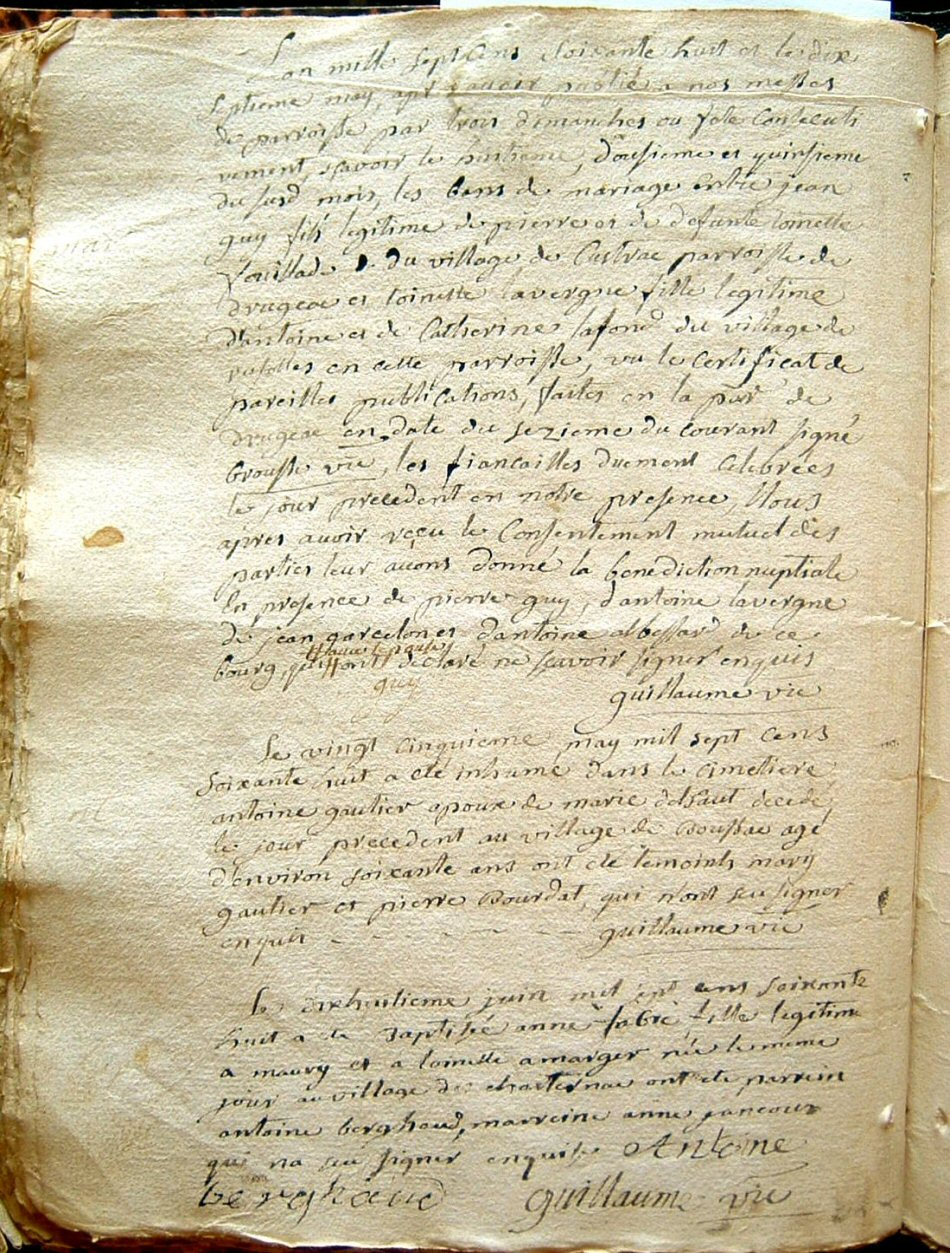 L'an mille septcens soixante huit et le dix
septieme may, apres avoir publié a nos messes
de parroisse par trois dimanches ou fete consecuti
vement, scavoir le huitieme, dousieme et quinsieme
du susd mois, les bans de mariage entre jean
guy fils legitime de pierre et de defunte toinette
fouillade du village de parroisse de
drugeac et toinette lavergne fille legitime
d'antoine et de Catherine lafond du village de
en cette parroisse, vu le certificat de
pareilles publications, faites en la parr de
drugeac en date du sezieme du courant signé
brousse vic, les fiancailles duement celebrées
le jour precedent en notre presence, Nous
apres avoir reçu le Consentement mutuel des
parties leur avons donné la benediction nuptiale
En presence de pierre guy, d'antoine lavergne
de jean garcelon et d'antoine albessard de ce
bourg, qui ont declaré ne scavoir signer enquis
guy
guillaume vic
Le vingt cinquieme may mil sept cens
soixante huit a eté inhumé dans le cimetiere
antoine gautier epoux de marie delsaut decedé
le jour precedent au village de Boussac agé
d'environ soixante ans ont eté temoins maury
gautier et pierre Bourdat, qui n'ont seu signer
enquis
guillaume vic
Le dixhuitieme juin mil sept cens soixante
huit a ete Baptisée anne fabre fille legitime
a maury et a toinette amarger née le meme
jour au village de charternac ont ete parrein
antoine berghaud, marreine anne
qui na seu signer enquise Antoine
berghaud guillaume vic